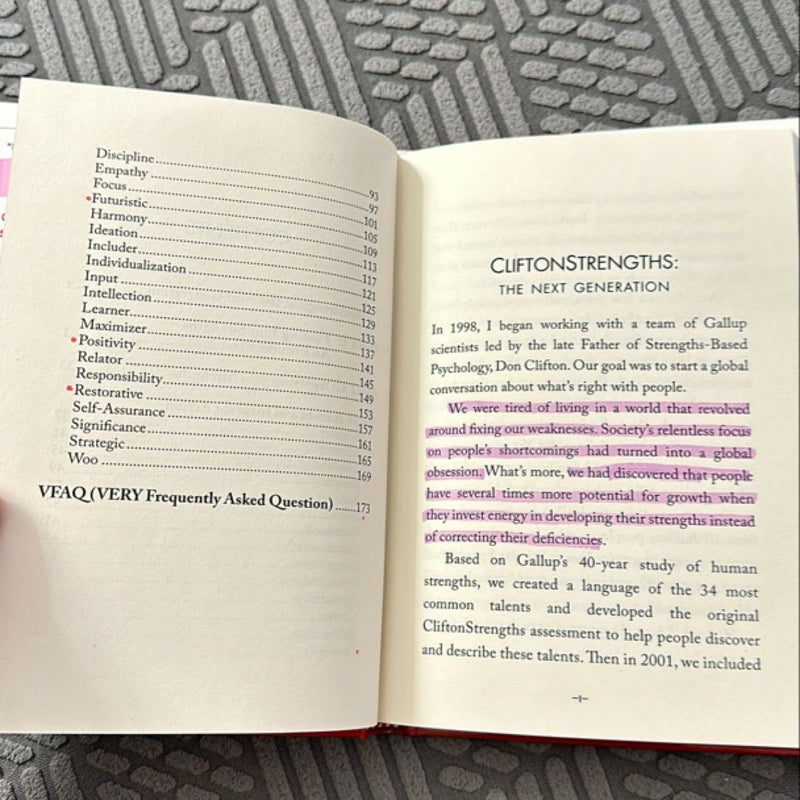 Discipline..........93
Empathy..........97
Focus..........101
Futuristic..........105
Harmony..........109
Ideation..........113
Includer..........117
Individualization..........121
Input..........125
Intellection..........129
Learner..........133
Maximizer..........137
Positivity..........141
Relator..........145
Responsibility..........149
Restorative..........153
Self-Assurance..........157
Significance..........161
Strategic..........165
Woo..........169
VFAQ (VERY Frequently Asked Question)......173
CLIFTONSTRENGTHS:
THE NEXT GENERATION
In 1998, I began working with a team of Gallup
scientists led by the late Father of Strengths-Based
Psychology, Don Clifton. Our goal was to start a global
conversation about what's right with people.
We were tired of living in a world that revolved
around fixing our weaknesses. Society's relentless focus
on people's shortcomings had turned into a global
obsession. What's more, we had discovered that people
have several times more potential for growth when
they invest energy in developing their strengths instead
of correcting their deficiencies.
Based on Gallup's 40-year study of human
strengths, we created a language of the 34 most
common talents and developed the original
CliftonStrengths assessment to help people discover
and describe these talents. Then in 2001, we included